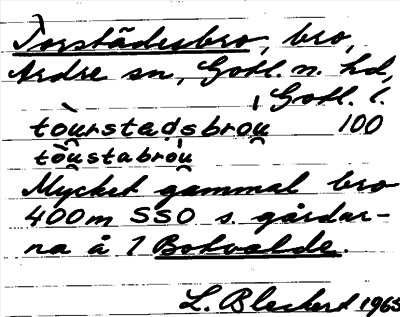 Torstädesbro, bro,
Ardre sn, Gotl. n. hd,
Gotl. l.
tòu̯rstaḍsbròu̯ 100
tòu̯stabròu̯
Mycket gammal bro
400m SSO s. gårdar-
na å 1 Botvalde.
L. Bleckert 1965